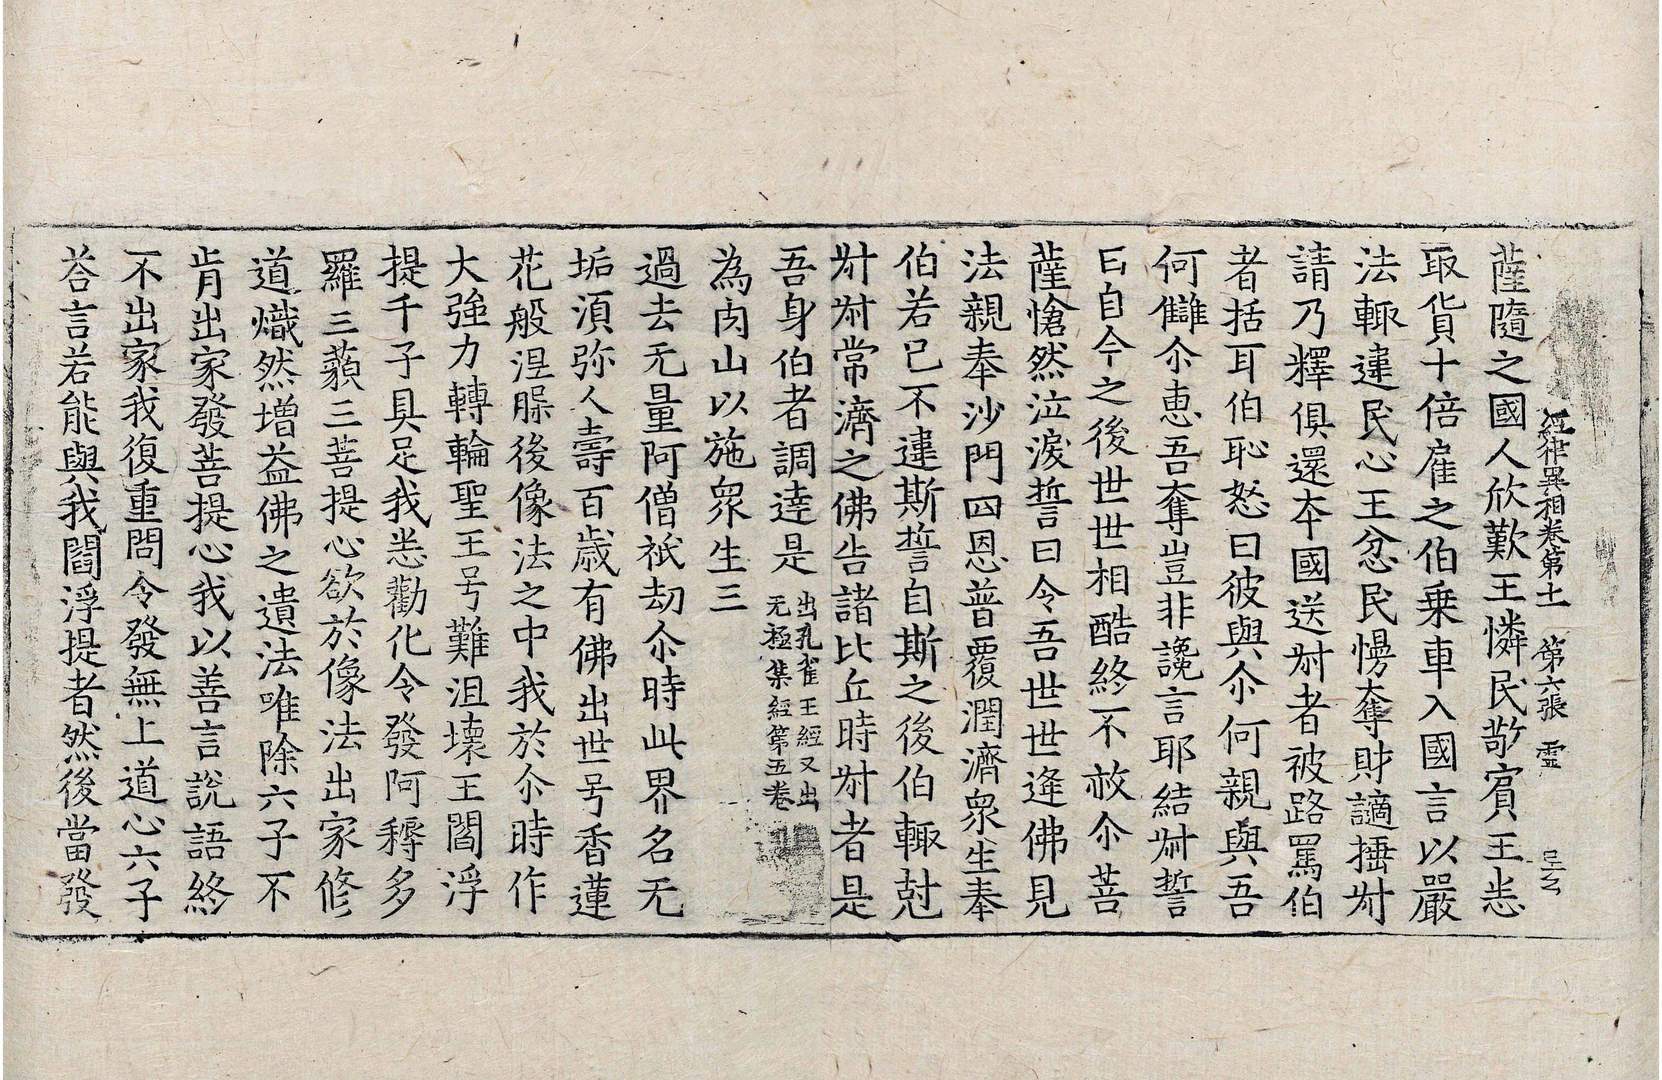 經律異相卷第十一 第六張 霊
薩隨之國人欣歎王憐民敬賓王恚
取貨十倍雇之伯乗車入國言以嚴
法輙違民心王忿民慢奪財讁捶尌
請乃釋俱還夲國送尌者被路罵伯
者括耳伯恥怒曰彼與尒何親與吾
何讎尒惠吾奪豈非讒言耶結尌誓
曰自今之後世世相酷終不赦尒菩
薩愴然泣淚誓曰令吾世世逢佛見
法親奉沙門四恩普覆潤濟衆生奉
伯若已不違斯誓自斯之後伯輙尅
尌尌常濟之佛告諸比丘時尌者是
吾身伯者調達是 出孔雀王經又出无極集經第五卷
為肉山以施衆生三
過去无量阿僧祇劫尒時此界名无
垢須弥人壽百歳有佛出世号香蓮
花般涅槃後像法之中我於尒時作
大強力轉輪聖王号難沮壊王閻浮
提千子具足我悉勸化令發阿耨多
羅三藐三菩提心欲於像法出家修
道熾然增益佛之遺法唯除六子不
肯出家發菩提心我以善言說語終
不出家我復重問令發無上道心六子
荅言若能與我閻浮提者然後當發